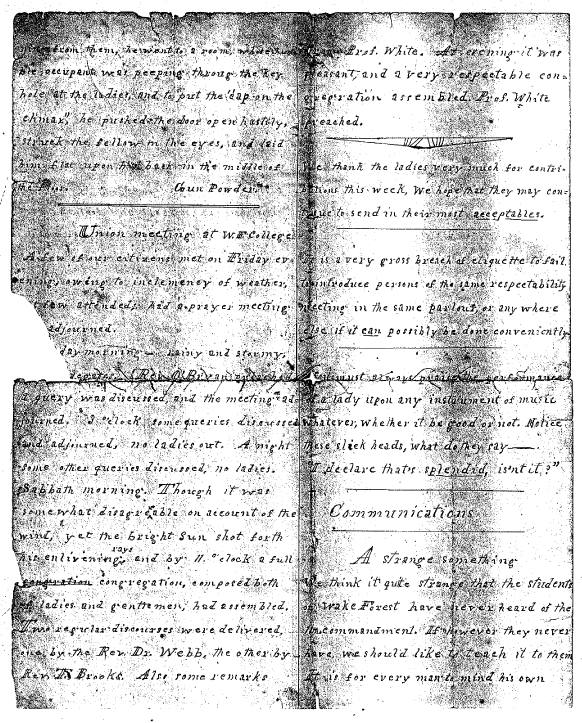 from them, he went to a room, where
occupant was peeping throug the key
hole at the ladies, and to put the "cap on the
climax," he pushed the door open hastily,
struck the fellow in the eyes, and laid
him flat upon his back in the middle of
Gun Powder.
Union meeting at W.F. College
A few of our citizens met on Friday ev-
ening; owing to inclemency of weather,
few attended; had a prayer meeting
adjourned.
day morning — rainy and stormy,
a query was discussed, and the meeting ad-
journed. 3 o'clock some queries discussed
and adjourned, no ladies out. At night
some other queries discussed, no ladies.
Sabbath morning. Though it was
somewhat disagreable on account of the
wind, yet the bright Sun shot forth
his enlivening rays and by 11. o'clock a full
congration congregation, composed both
of ladies and gentlemen, had assembled.
Two regular discourses were delivered,
one by the Rev. Dr. Webb, the other by
Rev. Brooks. Also some remarks
Prof. White. At evening it was
pleasant, and a very respectable con-
gregration assembled. Prof. White
preached.
We thank the ladies very much for contri-
butions this week, We hope that they may con-
tinue to send in their most acceptables.
It is a very gross breach of etiquette to fail
to introduce persons of the same respectability
meeting in the same parlour, or any where
else if it can possibly be done conveniently
must always the performance
of a lady upon any instrument of music
whatever, whether it be good or not. Notice
these slick heads, what do they say—
"I declare thats splendid, isnt it?"
Communications
A strange something
We think it quite strange that the students
of Wake Forest have never heard of the
commandment. If however they never
have, we should like to teach it to them
It is for every man to mind his own